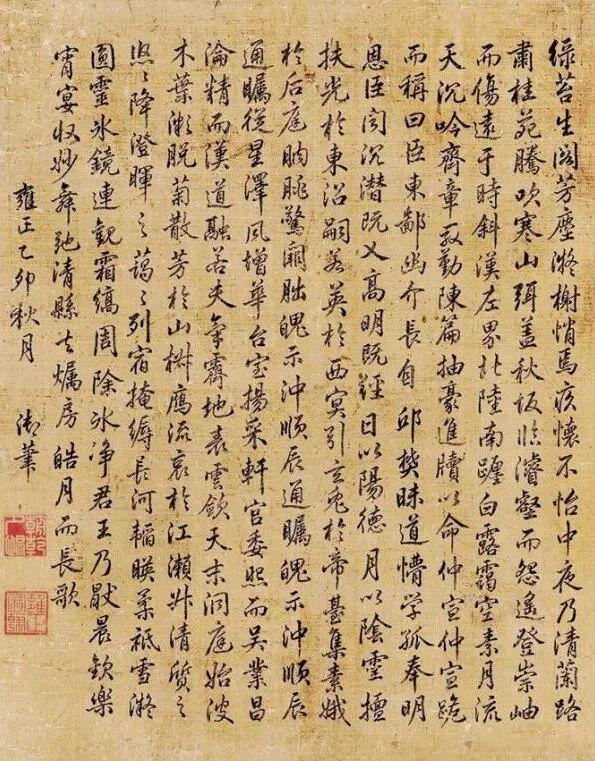 綠苔生閣芳塵凝榭悄焉疚懷不怡中夜乃清蘭路
肅桂苑騰吹寒山弭盖秋坂臨濬壑而怨遙登崇岫
而傷遠于時斜漢左界北陸南躔白露靄空素月流
天沉吟齊章殷勤陳篇抽豪進牘以命仲宣仲宣跪
而稱曰臣東鄙幽介長自邱樊昧道懵學孤奉明
恩臣聞沉潛既义高明既經日以陽德月以陰靈擅
扶光於東沼嗣若英於西冥引玄兔於帝臺集素娥
於后庭朒脁驚闕朏魄示沖順辰通矚魄示沖順辰
通矚從星澤風增華台室揚采軒宮委照而吳業昌
淪精而漢道融若夫氣霽地表雲歛天末洞庭始波
木葉漸脫菊散芳於山椒鴈流哀於江瀨升清質之
悠々降澄暉之藹々列宿掩縟長河韜暎柔祇雪凝
圓靈氷鏡連觀霜縞周除氷净君王乃厭晨歡樂
宵宴収妙舞弛清縣去燭房皓月而長歌
雍正乙卯秋月 御筆